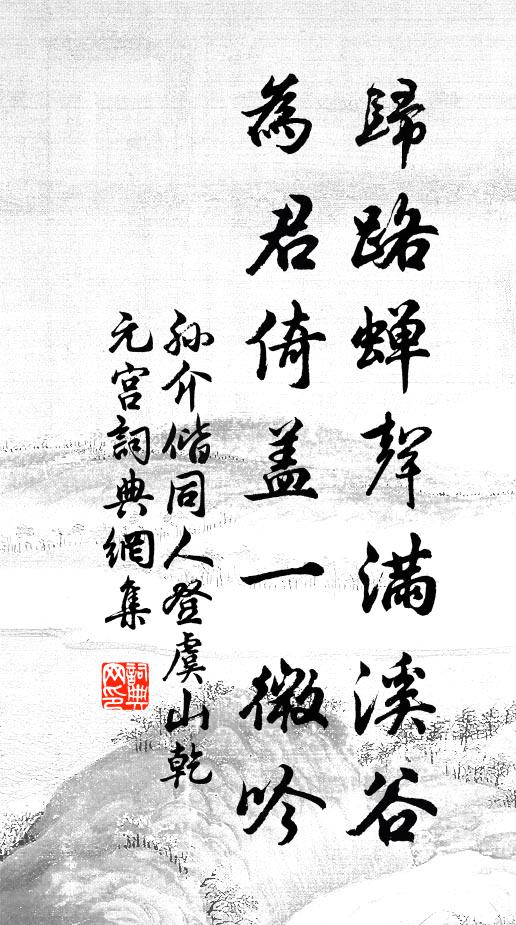 歸路蝉聲满溪谷
為君倚蓋一微吟
孙介偕同人登虞山乾
元宫詞典網集
詞典
网印